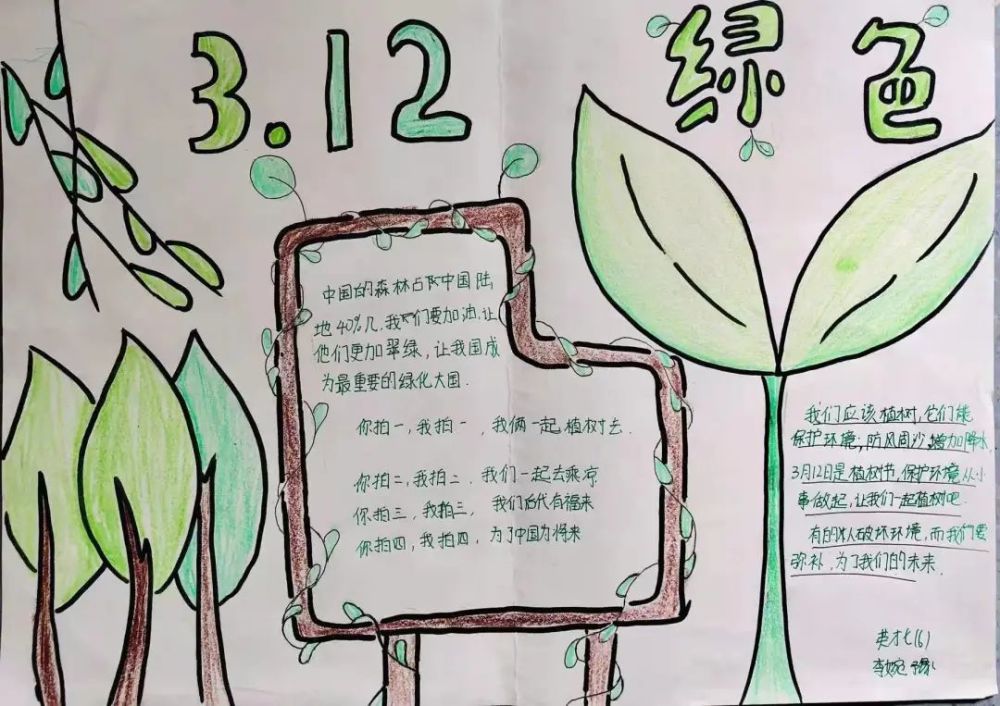 3.12 绿色
中国的森林占及中国陆
地40%几,我们要加油,让
他们更加翠绿,让我国成
为最重要的绿化大国.
你拍一,我拍一,我俩一起植树去.
你拍二,我拍二.我们一起去乘凉
你拍三,我拍三,我们后代有福来
你拍四,我拍四,为了中国为将来
我们应该植树,它们能
保护环境,防风固沙,增加降水.
3月12日是植树节,保护环境从小
事做起,让我们一起植树吧.
有的人破坏环境,而我们要
弥补,为了我们的未来.
英才七(6)
李婉